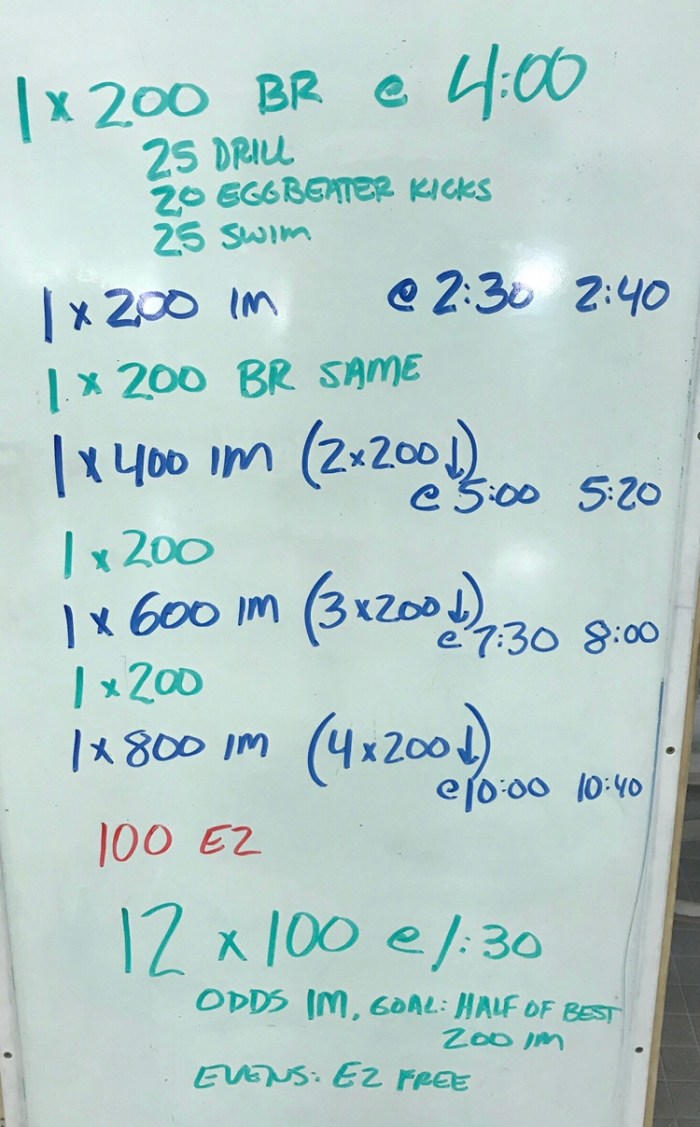 1 x 200 BR @ 4:00
25 DRILL
20 EGGBEATER KICKS
25 SWIM
1 x 200 IM @ 2:30 2:40
1 x 200 BR SAME
1 x 400 IM (2x200↓)
@ 5:00 5:20
1 x 200
1 x 600 IM (3x200↓)
@ 7:30 8:00
1 x 200
1 x 800 IM (4x200↓)
@ 10:00 10:40
100 EZ
12 x 100 @ 1:30
ODDS IM, GOAL: HALF OF BEST
200 IM
EVENS: EZ FREE